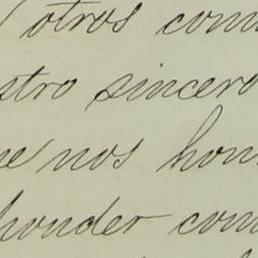 otros com
stro sincero
e nos hon
ponder com